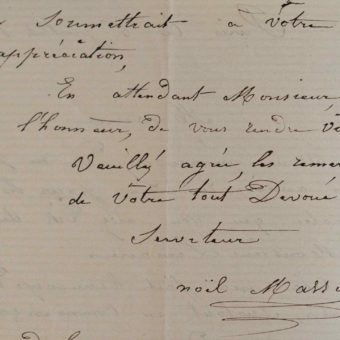 soumettrait à Votre
appréciation,
En attendant Monsieur,
l'honneur, de vous rendre
Veuillé agrée, les
de Votre tout Dévoué
Serviteur
noël